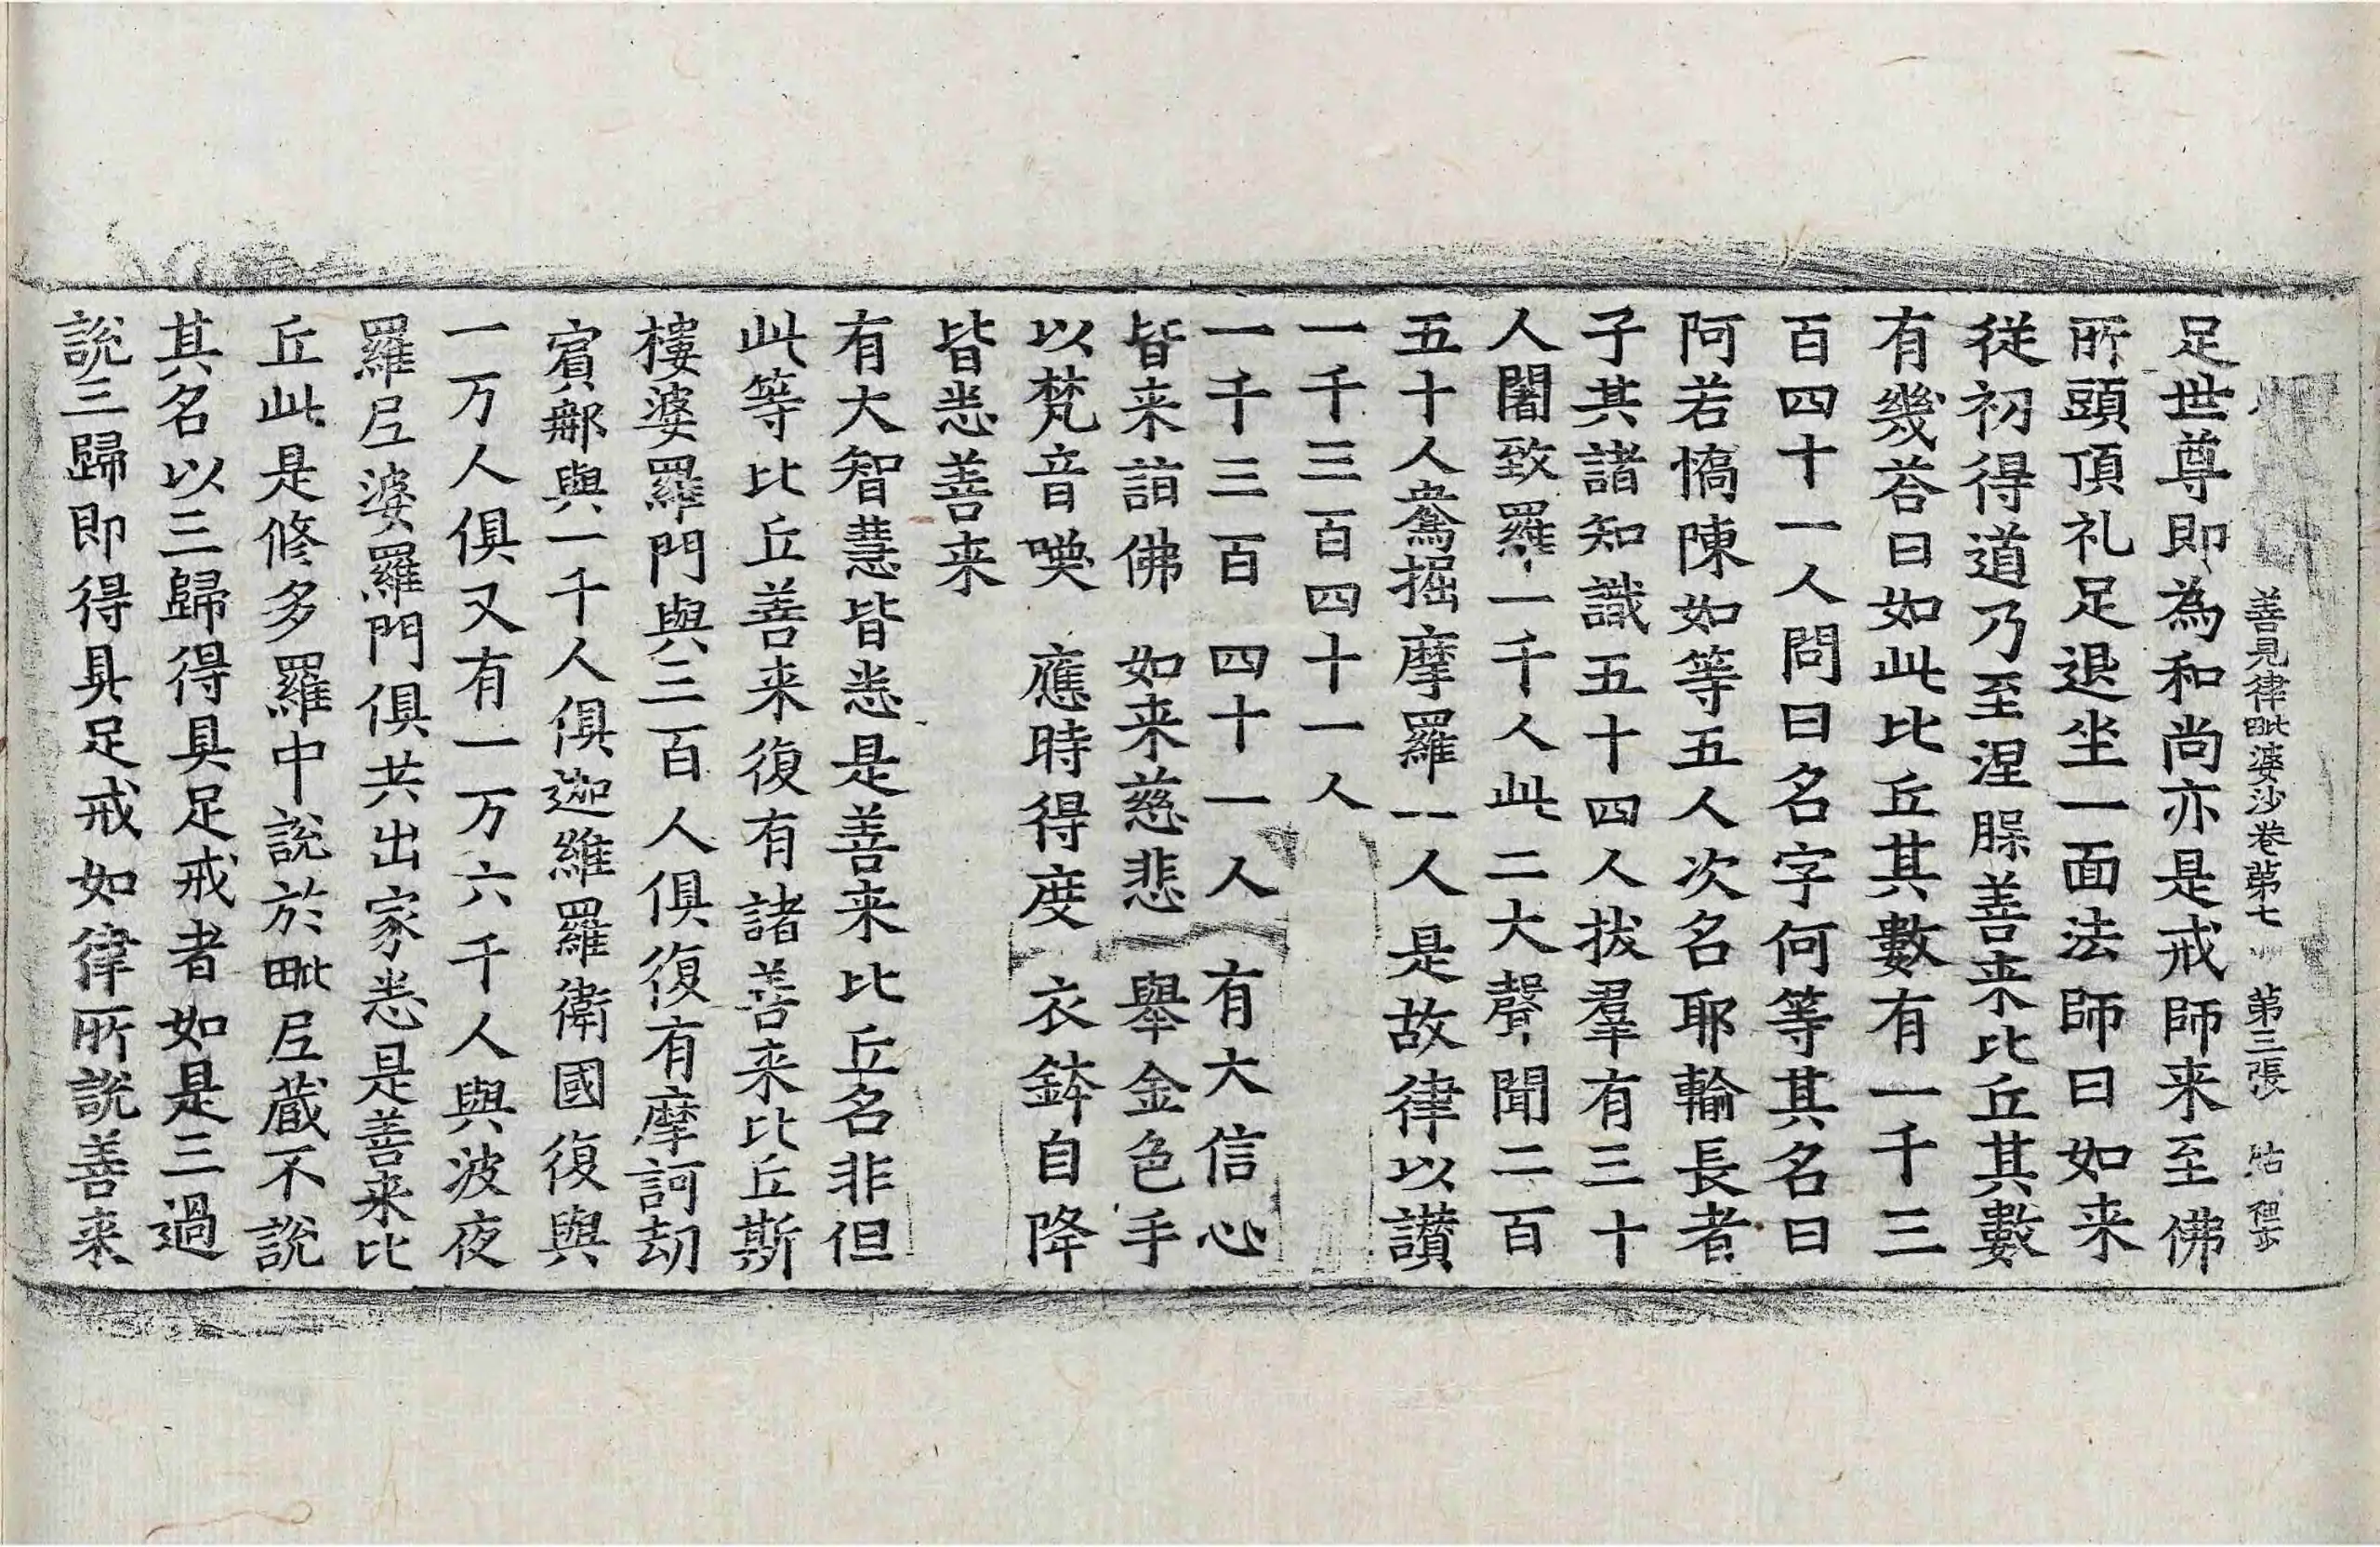 善見律毗婆沙卷苐七 苐三張
足世尊即為和尚亦是戒師来至佛
所頭頂礼足退坐一面法師曰如来
従初得道乃至涅𦞙善来比丘其數
有幾荅曰如此比丘其數有一千三
百四十一人問曰名字何等其名曰
阿若憍陳如等五人次名耶輸長者
子其諸知識五十四人拔羣有三十
人闍致羅一千人此二大聲聞二百
五十人鴦掘摩羅一人是故律以讃
一千三百四十一人
一千三百 四十一人 有大信心
皆来詣佛 如来慈悲 舉金色手
以梵音喚 應時得度 衣鉢自降
皆悉善来
有大智慧皆悉是善来比丘名非但
此等比丘善来復有諸善来比丘斯
樓婆羅門與三百人俱復有摩訶劫
賓𨚗與一千人俱迦維羅衛國復與
一万人俱又有一万六千人與波夜
羅𡰱婆羅門俱共出家悉是善来比
丘此是修多羅中說於毗𡰱藏不說
其名以三歸得具足戒者如是三過
說三歸即得具足戒如律所說善来